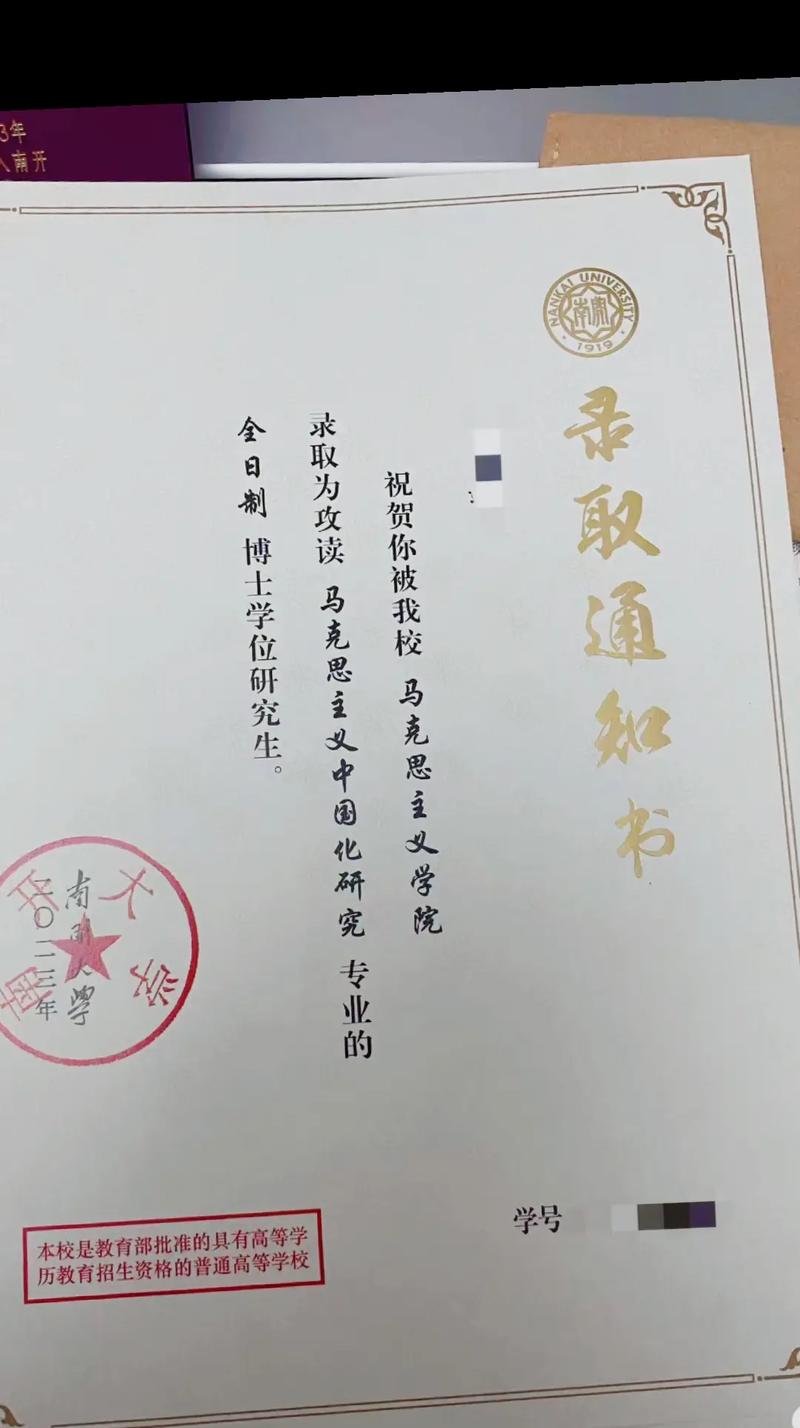 3年
入南开
NANKAI UNIVERSITY
南开
1919
录取通知书
祝贺你被我校 马克思主义学院
录取为攻读 马克思主义中国化研究 专业的
全日制 博士学位研究生。
南开大学
二〇二三年
南开大学
学号
本校是教育部批准的具有高等学
历教育招生资格的普通高等学校